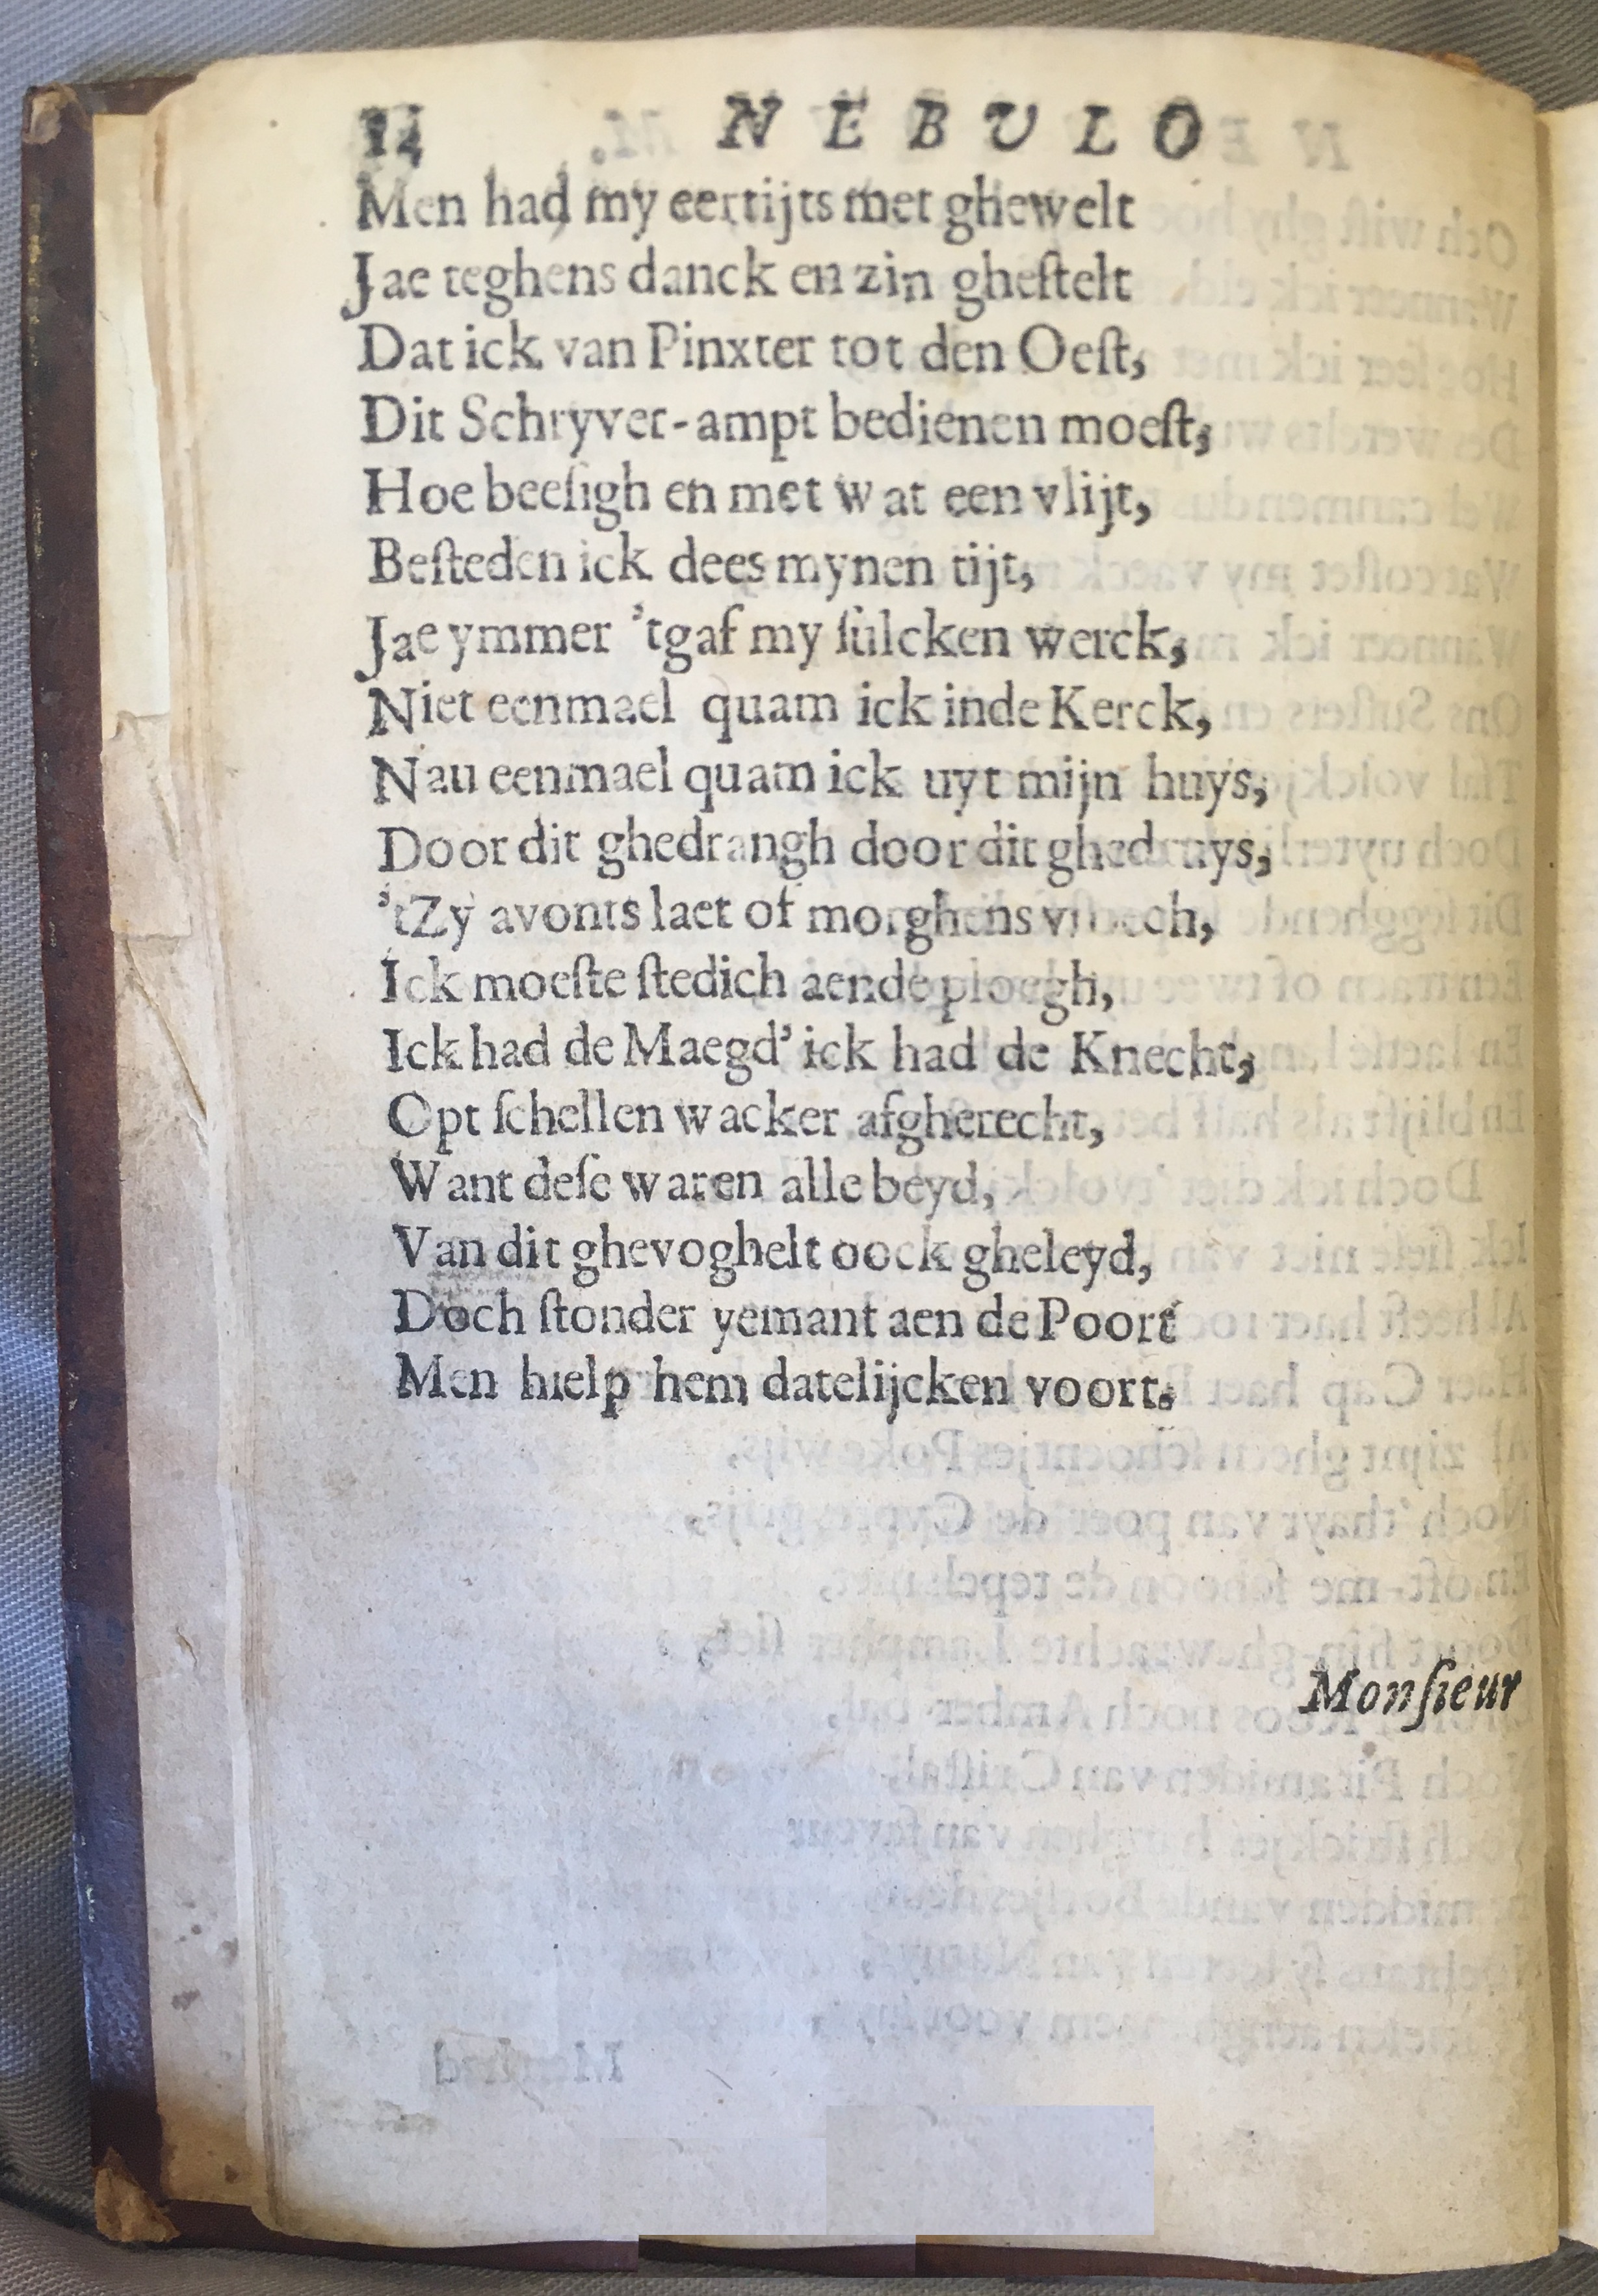 14 NEBULO
Men had my eertijts met ghewelt
Jae teghens danck en zin gheſtelt
Dat ick van Pinxter tot den Oeſt,
Dit Schryver-ampt bedienen moeſt,
Hoe beeſigh en met wat een vlijt,
Beſteden ick dees mynen tijt,
Jae ymmer 'tgaf my ſulcken werck,
Niet eenmael quam ick inde Kerck,
Nau eenmael quam ick uyt mijn huys,
Door dit ghedrangh door dit ghedruys,
'tZy avonts laet of morghens vroech,
Ick moeſte ſtedich aende ploegh,
Ick had de Maegd' ick had de Knecht,
Opt ſchellen wacker afgherecht,
Want deſe waren alle beyd,
Van dit ghevoghelt oock gheleyd,
Doch ſtonder yemant aen de Poort
Men hielp hem datelijcken voort.
Monſieur